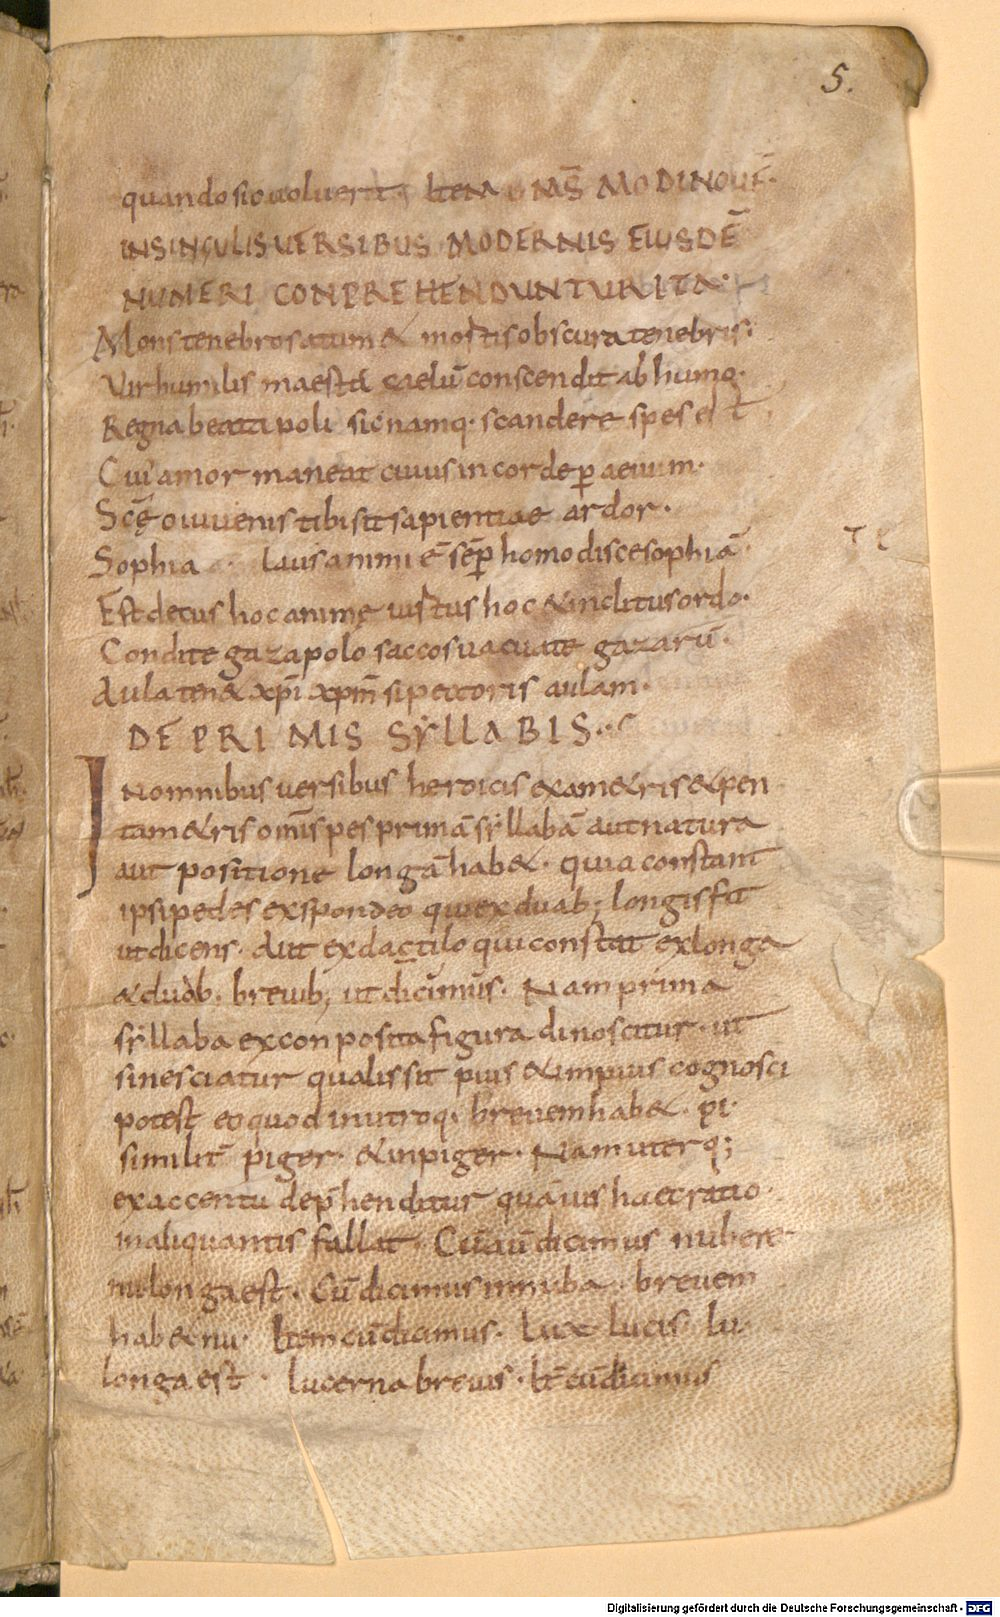 5.
quando sic uoluerit ITEM OMS MODI NOUE
IN SINGULIS UERSIBUS MODERNIS EIUSDĒ
NUMERI CONPREHENDUNTUR ITA·
Mons tenebrosa tum & mostis obscura tenebris·
Vir humilis maestꝰ caelū conscendit ab humo·
Regna beata poli sic namq· scandere spes est
Cui amor maneat cuius in corde ꝑ aeuum·
Scē o iuuenis tibi sit sapientiae ardor·
Sophia laus animi ē sēꝑ homo disce sophiā·
Est decus hoc animę iustus hoc & inclitus ordo·
Condite gaza polo saccos uacuate gazarū·
Aula ten& xp̄i xp̄m si pectoris aulam·
DE PRIMIS SYLLABIS·
IN omnibus uersibus heroicis exam&ris & pen
tam&ris om̄s pes primā syllabā aut natura
aut positione longā hab&· quia constant
ipsi pedes ex spondeo qui ex duab; longis fit
ut dicens· Aut ex dactilo qui constat ex longa
& duob· breuib; ut dicimus· Nam prima
syllaba ex conposita figura dinoscitur· ut
si nesciatur qualis sit pius & impius cognosci
potest eo quod in utroq· breuem hab&· pi·
similit̄ piger· & inpiger· Nam uterq;
ex accentu dep̄henditur quāuis haec ratio
in aliquantis fallat· Cū aū dicimus nubere
nu longa est· Cū dicimus innuba· breuem
hab& nu· Item cū dicimus· Lux lucis lu·
longa est· lucerna breuis· It̄ cū dicimus